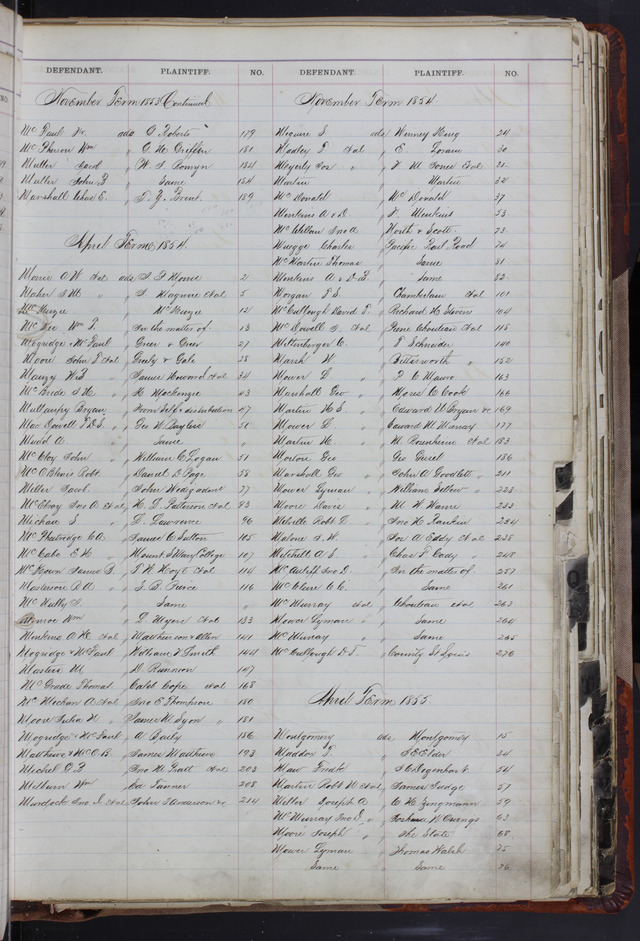 DEFENDANT. PLAINTIFF. NO.
November Term 1853 Continued
Mc Paul Wm ads O Roberts 179
Mc Pheron Wm " C M Griffin 181
Muller Jacob " W. S. Romyn 184
Muller John F " Same 184
Marshall Chas E. " T. Y. Brent. 189
April Term 1854
Moore A W et al ads 2
Maher I M " " Maguire et al 5
Mc Kenzie " Mc Kenzie 12
Mc Kee Wm F. " In the matter of 13
Mogridge Mc Paul " Greer & Greer 21
Moore John T et al " Greely & Gale 28
" James Howard et al 34
Mc Bride " H Mackenzie 43
Mullanphy Bryan " 47
Mac Dowell J D S. " Geo W Bayless 50
Mudd A " Same "
Mc Cloy John " William C Logan 51
Mc O'Blenis Robt. " Daniel D Page 58
Meller Jacob " John Wedgadent 77
Mc Elroy Jno A et al " H. D. Patterson et al 93
Michau S " D. Lawrence 96
Mc Pheatridge C A " James C Sutton 105
Mc Cabe E H " Mount St Mary College 107
Mc Kown James B. " T H Hoyt et al 114
Masterson R A " J. B. Pierce 116
Mc Nulty S " Same "
Monroe Wm " D. Myers et al 133
Menkens A H et al " Matthewson & Allen 141
Mogridge & Mc Paul " Nathan D Smith 144
Masters M " D. Runnion 147
Mc Grade Thomas " Calet Cope et al 168
Mc Mechan A et al " Jno E Thompson 180
Moore Julia N " James M Lyon " 181
Mogridge & Mc Paul " A Early 186
Matthews & Mc O B " James Matthews 193
Michel O F " Jno M Pratt et al 203
Millburn Wm " Ed Tanner 208
Murdock Jno J et al " John J Anderson &c 214
DEFENDANT. PLAINTIFF. NO.
November Term 1854
Maguire J. ads 24
Madley T et al " E Loram 30
Meyerly Jos " " V M Jones et al 31
Martin " Martin 32
Mc Donald " Mc Donald 37
Menkins A & D " V. Menkins 53
Mc Clellan Jno A " North & Scott 73
Mugge Charles " Pacific Rail Road 74
Mc Martin Thomas " Same 81
Menkens A & D B. " Same 82
Morgan P S. " Chamberlain et al 101
Mc Cullough David T. " Richard H Stevens 104
Mc Dowell J. et al " Jane Chouteau et al 115
Mettenberger C. " E Schneider 140
Marsh W " Butterworth 152
Mower L " P C Mauro 163
Marshall Geo " Moses C Cook 166
Martin H S. " Edward W Bryan &c 169
Mower L " Edward W Murray 177
Martin H " M Rosenheim et al 183
Morton Geo " Geo Geisel 186
Marshall Geo " John A Goodlett 211
Mower Lyman " William Sellew " 223
Moore Davis " M W Warne 233
Melville Robt L " Jno H Rankin 234
Malone J. W. " Jos A Eddy et al 238
Mitchell A S. " Chas F Cady " 248
Mc Auliff Jno D. " In the matter of 257
Mc Clure C C. " Same 261
Mc Murray et al " Chouteau et al 263
Mower Lyman " " Same 264
Mc Murray " " Same 265
Mc Cullough D T. " County St Louis 276
April Term 1855
Montgomery ads Montgomery 15
Maddox T. " J E Elder 54
Maw Fredk " J C Degenhart 54
Martin Robt M et al " James Judge 57
Meller Joseph A " C H Zingmann 59
Mc Murray Jno D. " Joshua B Owings 63
Moore Joseph " The State 68
Mower Lyman " Thomas Walsh 75
Same " Same 76